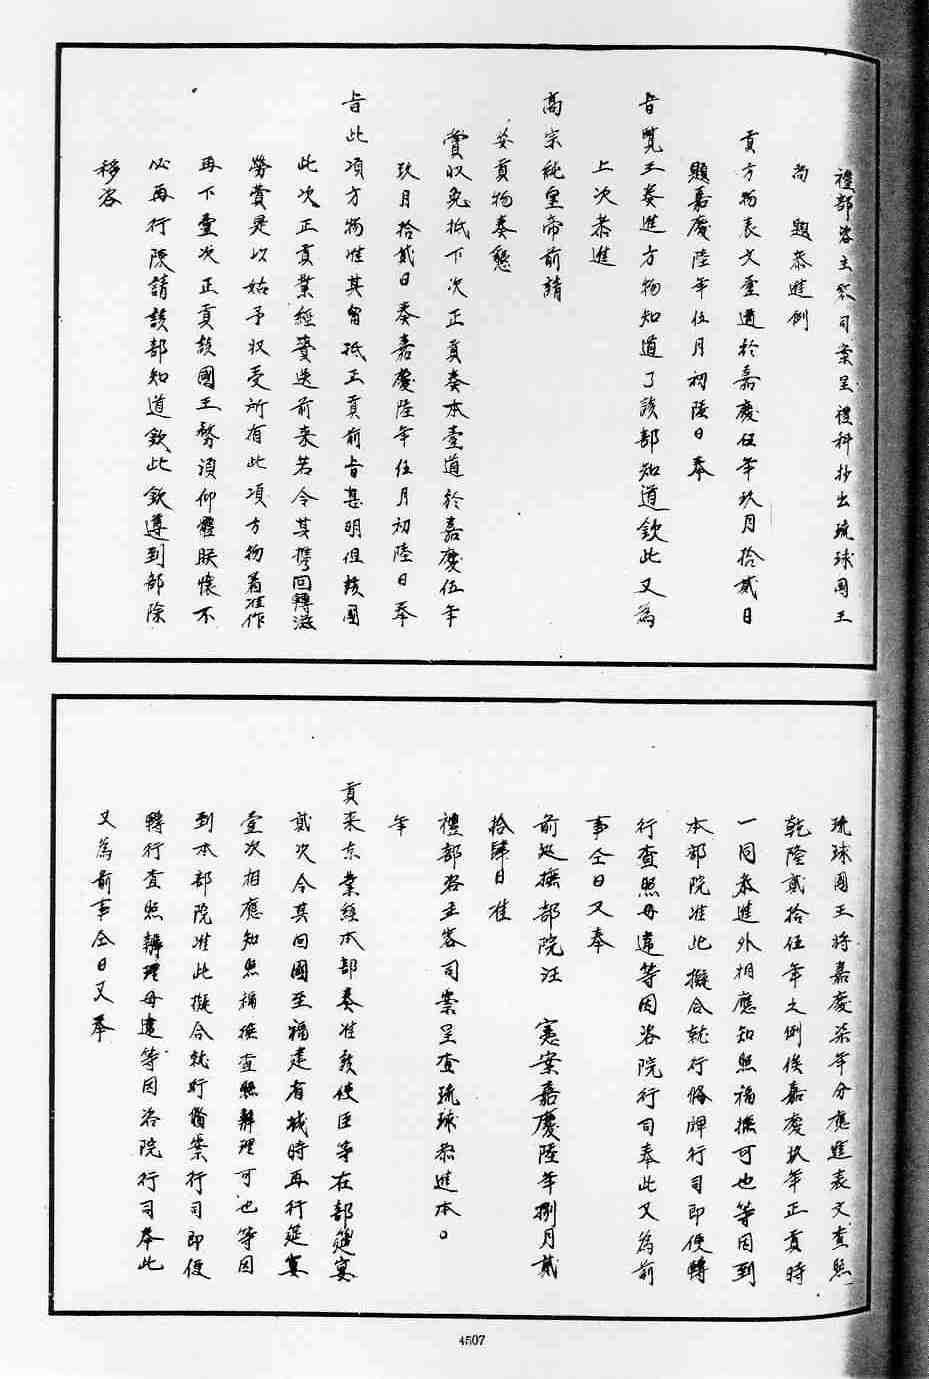 禮部咨主客司案呈禮科抄出琉球國王
尚　題恭進例
貢方物表文壹道於嘉慶伍年玖月拾貳日
題嘉慶陸年伍月初陸日奉
旨覽王奏進方物知道了該部知道欽此又為
上次恭進
高宗純皇帝前請
安貢物奏懇
賞收免抵下次正貢奏本壹道於嘉慶伍年
玖月拾貳日奏嘉慶陸年伍月初陸日奉
旨此項方物准其留抵正貢前旨甚明但該國
此次正貢業經賷送前來若令其攜回轉滋
勞費是以姑予收受所有此項方物着准作
再下壹次正貢該國王務須仰體朕懷不
必再行陳請該部知道欽此欽遵到部除
移咨
琉球國王將嘉慶柒年分應進表文查照
乾隆貳拾伍年之例俟嘉慶玖年正貢時
一同恭進外相應知照福撫可也等因到
本部院准此擬合就行備牌行司即便轉
行查照毋違等因咨院行司奉此又為前
事仝日又奉
前廵撫部院汪　憲案嘉慶陸年捌月貳
拾肆日准
禮部咨主客司案呈查琉球恭進本
年
貢來京業經本部奏准該使臣等在部筵宴
貳次今其回國至福建省城時再行筵宴
壹次相應知照福撫查照辦理可也等因
到本部院准此擬合就行備案行司即便
轉行查照辦理毋違等因咨院行司奉此
又為前事仝日又奉
4507